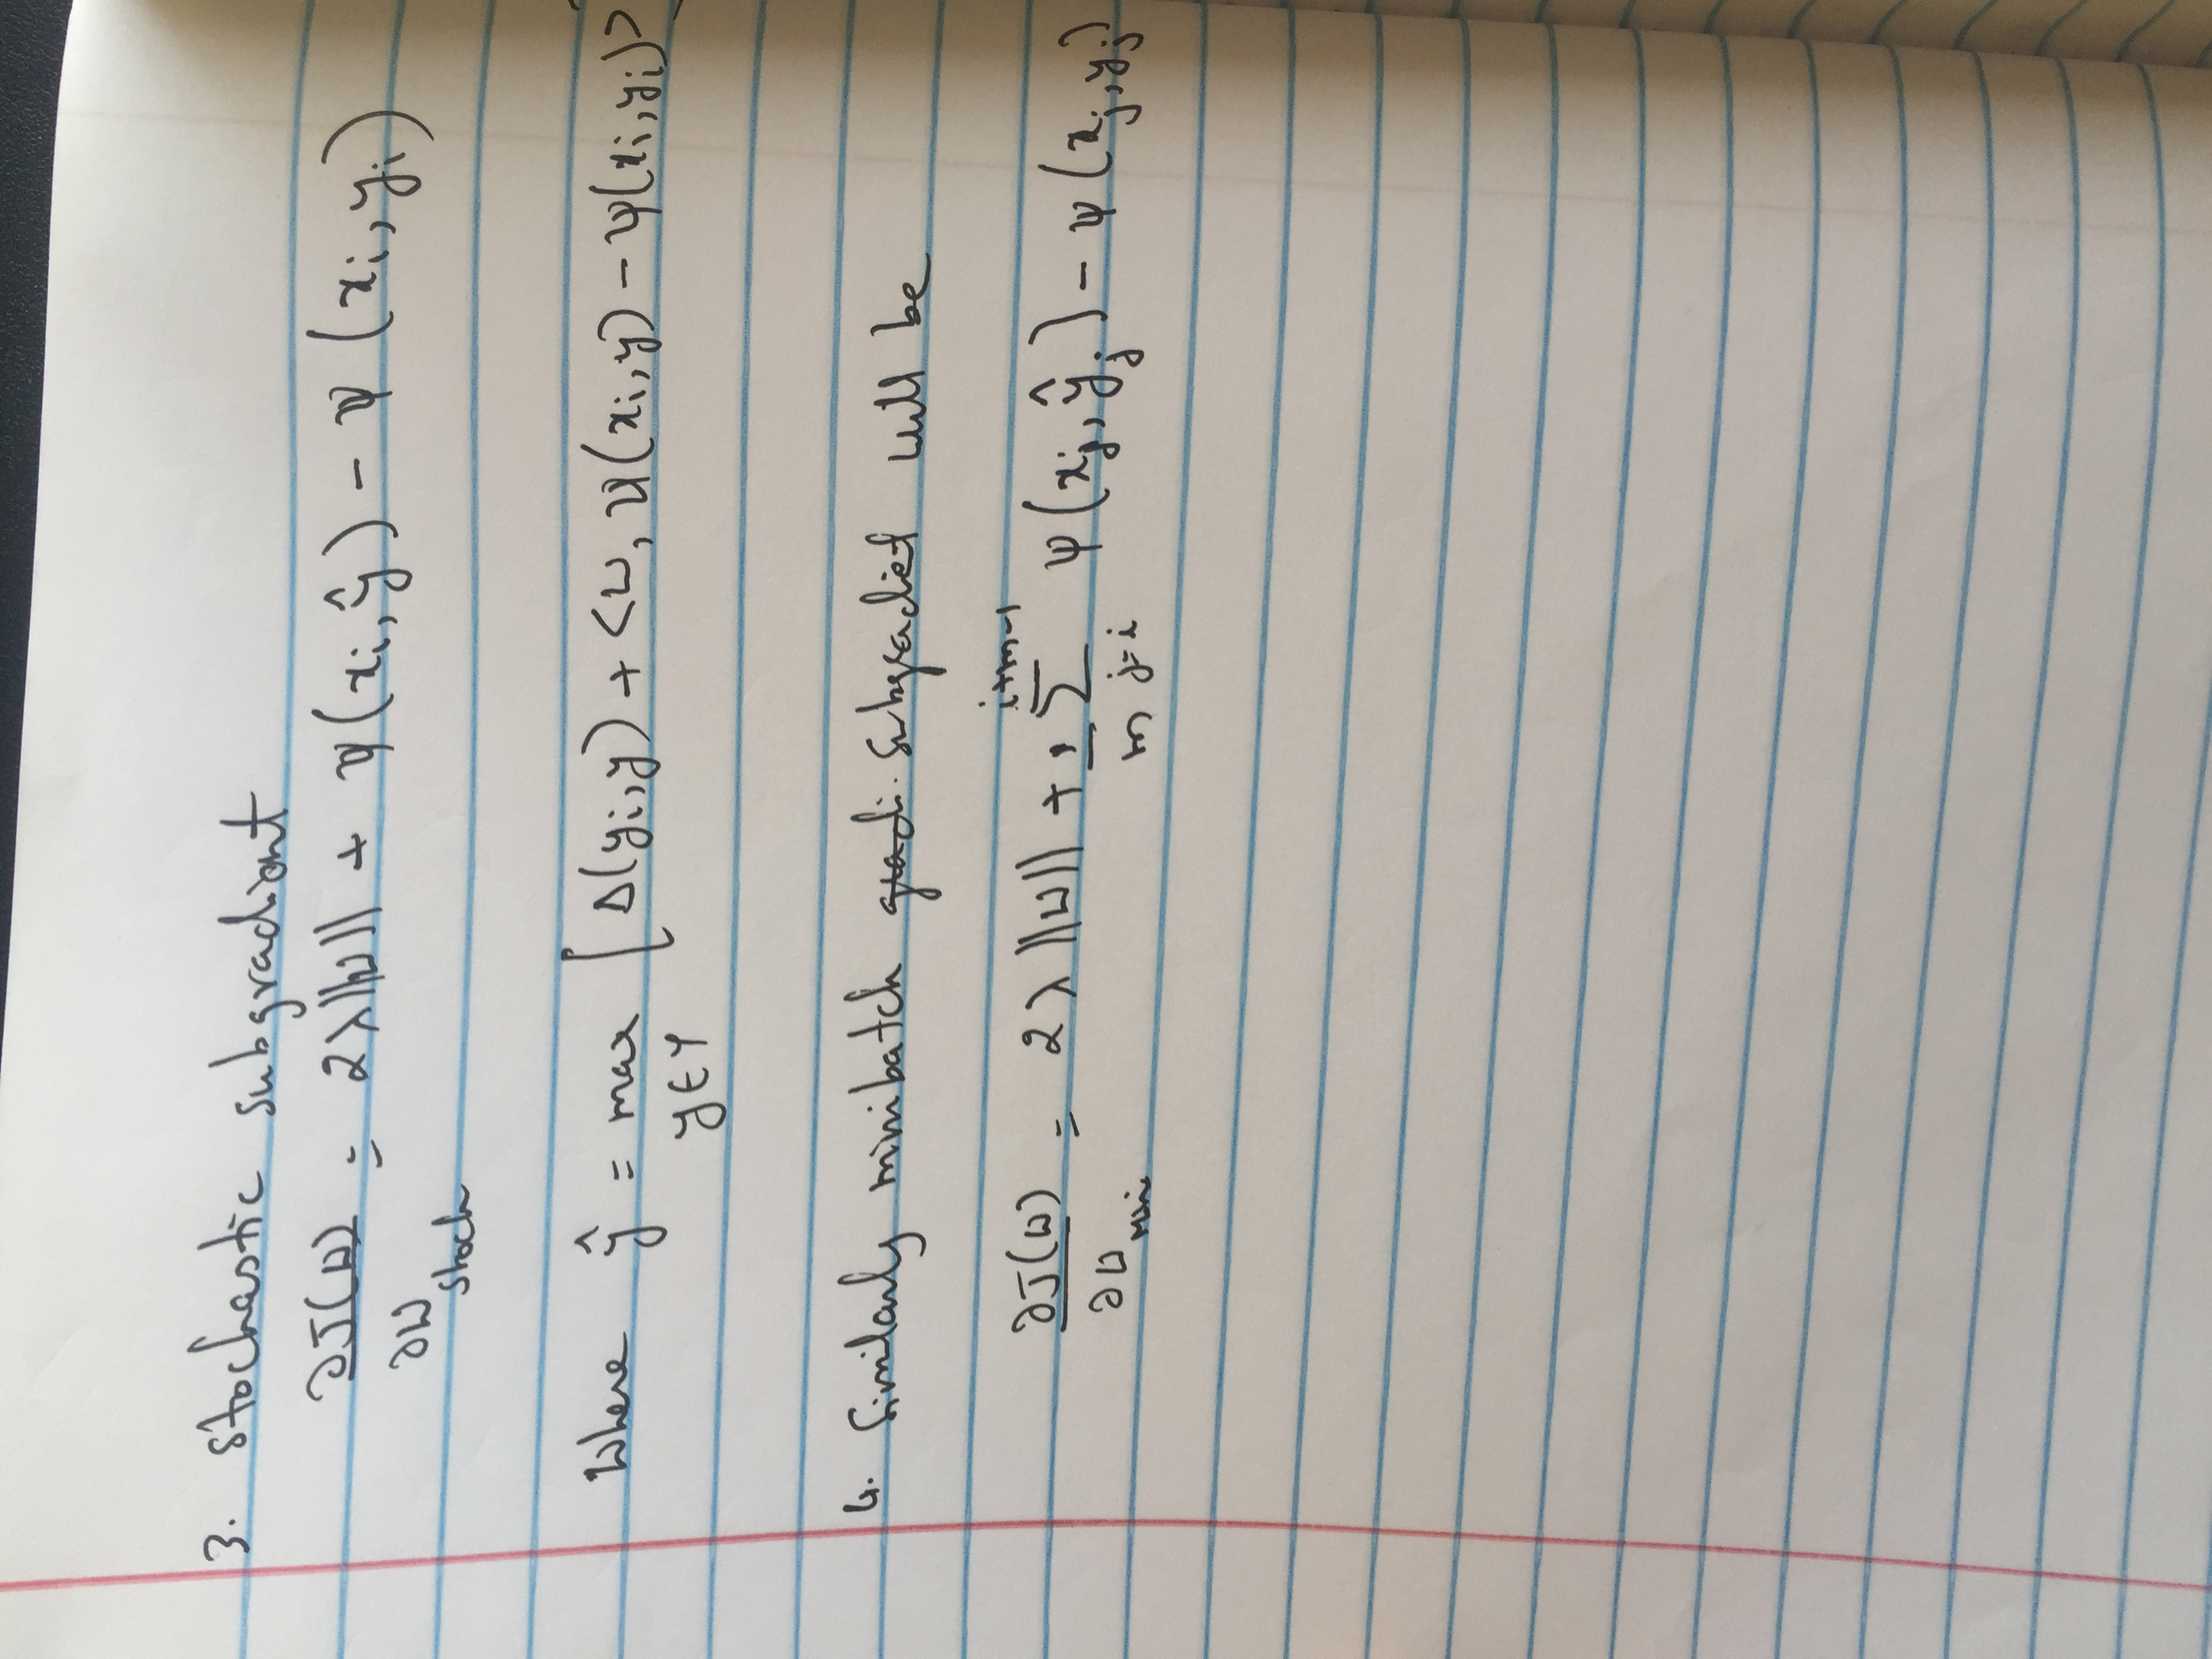 3. Stochastic subgradient
∂J(w)/∂w stoch = 2λ||w|| + ψ(xi, ŷ) - ψ(xi, yi)
Where ŷ = max y∈Y [Δ(yi, y) + <w, ψ(xi, y) - ψ(xi, yi)>
4. Similarly minibatch gradi. Subgradiet will be
∂J(w)/∂w mini = 2λ||w|| + 1/m Σ j=i i+m-1 ψ(xj, ŷj) - ψ(xj, yj)